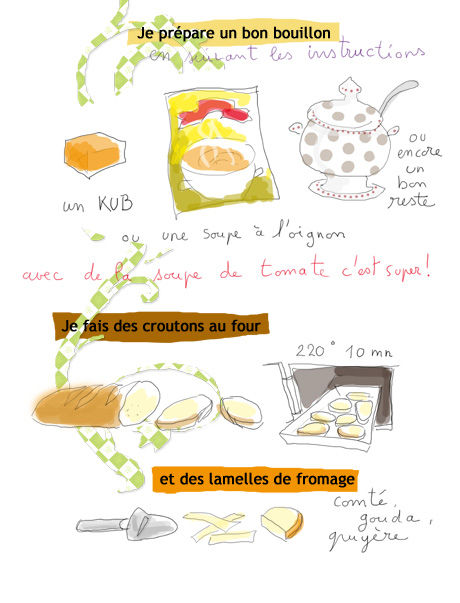 Je prépare un bon bouillon
en suivant les instructions
ou
encore
un
bon
reste
un KUB
ou une soupe à l'oignon
avec de la soupe de tomate c'est super!
Je fais des croutons au four
220° 10 mn
et des lamelles de fromage
comté,
gouda,
gruyère